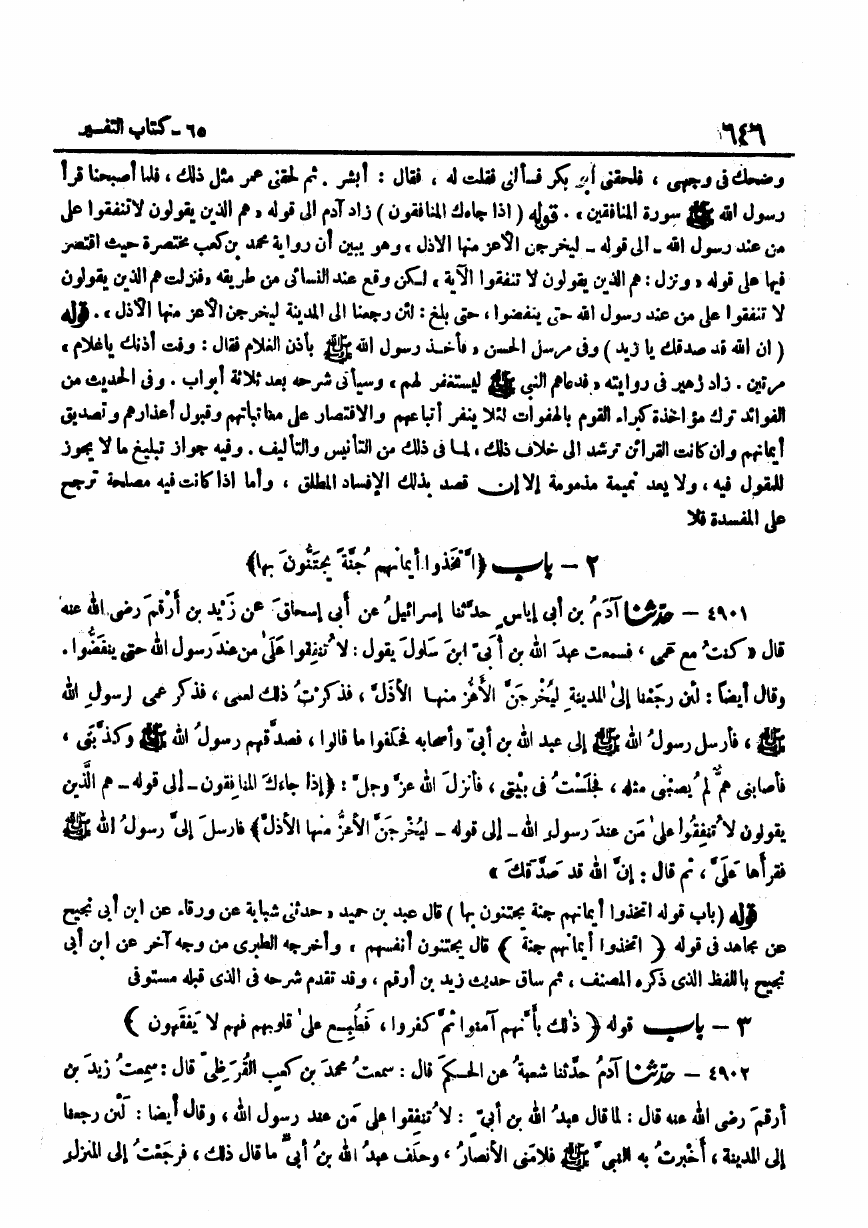 ٦٤٦
٦٥ - كتاب التفسير
وضحك فى وجهى ، فلحقنى أبو بكر فسألنى فقلت له ، فقال : أبشر . ثم لحقنى عمر مثل ذلك ، فلما أصبحنا قرأ
رسول الله ﷺ سورة المنافقين » . قوله ( اذا جاءك المنافقون ) زاد آدم الى قوله « هم الذين يقولون لا تنفقوا على
من عند رسول الله - الى قوله - ليخرجن الأعز منها الاذل » وهو يبين أن رواية محمد بن كعب مختصرة حيث اقتصر
فيها على قوله « ونزل : هم الذين يقولون لا تنفقوا الآية » لكن وقع عند النسائى من طريقه « فنزلت هم الذين يقولون
لا تنفقوا على من عند رسول الله حتى ينفضوا ، حتى بلغ : لئن رجعنا الى المدينة ليخرجن الأعز منها الأذل » . قوله
( ان الله قد صدقك يا زيد ) وفى مرسل الحسن « فأخذ رسول الله ﷺ بأذن الغلام فقال : وفت أذنك ياغلام »
مرتين . زاد زهير فى روايته « فدعاهم النبى ﷺ ليستغفر لهم » وسيأتى شرحه بعد ثلاثة أبواب . وفى الحديث من
الفوائد ترك مؤاخذة كبراء القوم بالهفوات لئلا ينفر أتباعهم والاقتصار على معاتباتهم وقبول أعذارهم وتصديق
أيمانهم وان كانت القرائن ترشد الى خلاف ذلك ، لما فى ذلك من التأنيس والتأليف . وفيه جواز تبليغ ما لا يجوز
للمقول فيه ، ولا يعد نميمة مذمومة إلا إن قصد بذلك الإفساد المطلق ، وأما اذا كانت فيه مصلحة ترجح
على المفسدة فلا
٢ - باب ﴿ اتَّخذوا أيمانهم جُنَّةً يجتَنُّونَ بها ﴾
٤٩٠١ - حدّثنا آدَمُ بن أبى إياسٍ حدَّثنا إسرائيلُ عن أبى إسحاقَ عن زَيْدِ بن أرْقمَ رضى الله عنه
قال « كنتُ مع عمى ، فسمعت عبدَ الله بن أبىّ ابنَ سَلولَ يقول : لا تُنفِقوا عَلَى من عندَ رسول الله حتى ينفَضُّوا .
وقال أيضاً : لئن رجَعْنا إلى المدينةِ ليُخْرِجَنَّ الأعَزُّ منها الأذَلَّ ، فذكرْتُ ذلك لعمى ، فذكر عمى لرسولِ الله
ﷺ ، فأرسل رسولُ الله ﷺ إلى عبد الله بن أبىّ وأصحابه فحلَفوا ما قالوا ، فصدَّقهم رسولُ الله ﷺ وكذَّبَنى ،
فأصابنى همٌّ لم يُصِبْنى مثلهُ ، فجلَسْتُ فى بيْتى ، فأنزلَ الله عزَّ وجلَّ : ﴿ إذا جاءكَ المنافِقون - إلى قوله - هم الَّذين
يقولون لا تُنفِقُوا على مَن عندَ رسولِ الله - إلى قوله - ليُخْرِجَنَّ الأعزُّ منها الأذلَّ ﴾ فارسلَ إلىَّ رسولُ الله ﷺ
فقرأها عَلَىَّ ، ثم قال : إنَّ الله قد صَدَّقكَ »
قوله ( باب قوله اتخذوا أيمانهم جنة يجتنون بها ) قال عبد بن حميد « حدثنى شبابة عن ورقاء عن ابن أبى نجيح
عن مجاهد فى قوله ﴿ اتخذوا أيمانهم جنة ﴾ قال يجتنون أنفسهم » وأخرجه الطبرى من وجه آخر عن ابن أبى
نجيح باللفظ الذى ذكره المصنف ، ثم ساق حديث زيد بن أرقم ، وقد تقدم شرحه فى الذى قبله مستوفى
٣ - باب قوله ﴿ ذلك بأنَّهم آمنوا ثمَّ كفروا ، فَطُبِع على قلوبهم فهم لا يَفقَهون ﴾
٤٩٠٢ - حدّثنا آدمُ حدَّثنا شعبةُ عن الحكَم قال : سمعتُ محمدَ بن كعبٍ القُرَظىّ قال : سمِعتُ زيدَ بن
أرقمَ رضى الله عنه قال : لما قال عبدُ الله بن أبىّ : لا تُنفقوا على مَن عند رسول الله ، وقال أيضا : لئن رجعنا
إلى المدينة ، أخْبرتُ به النبىَّ ﷺ فلامَنى الأنصارُ ، وحلَف عبدُ الله بنُ أبىّ ما قال ذلك ، فرجَعْتُ إلى المنزل